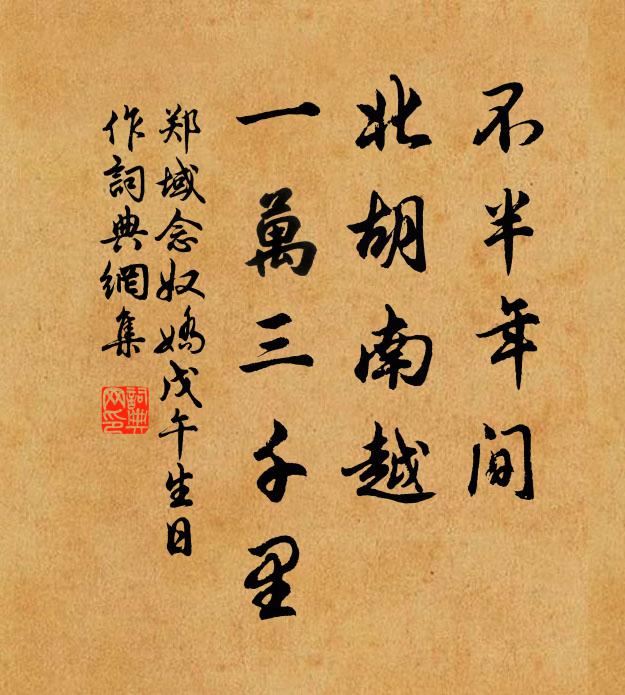 不半年间
北胡南越
一萬三千里
郑域念奴嬌戊午生日
作詞典網集
詞典
网印